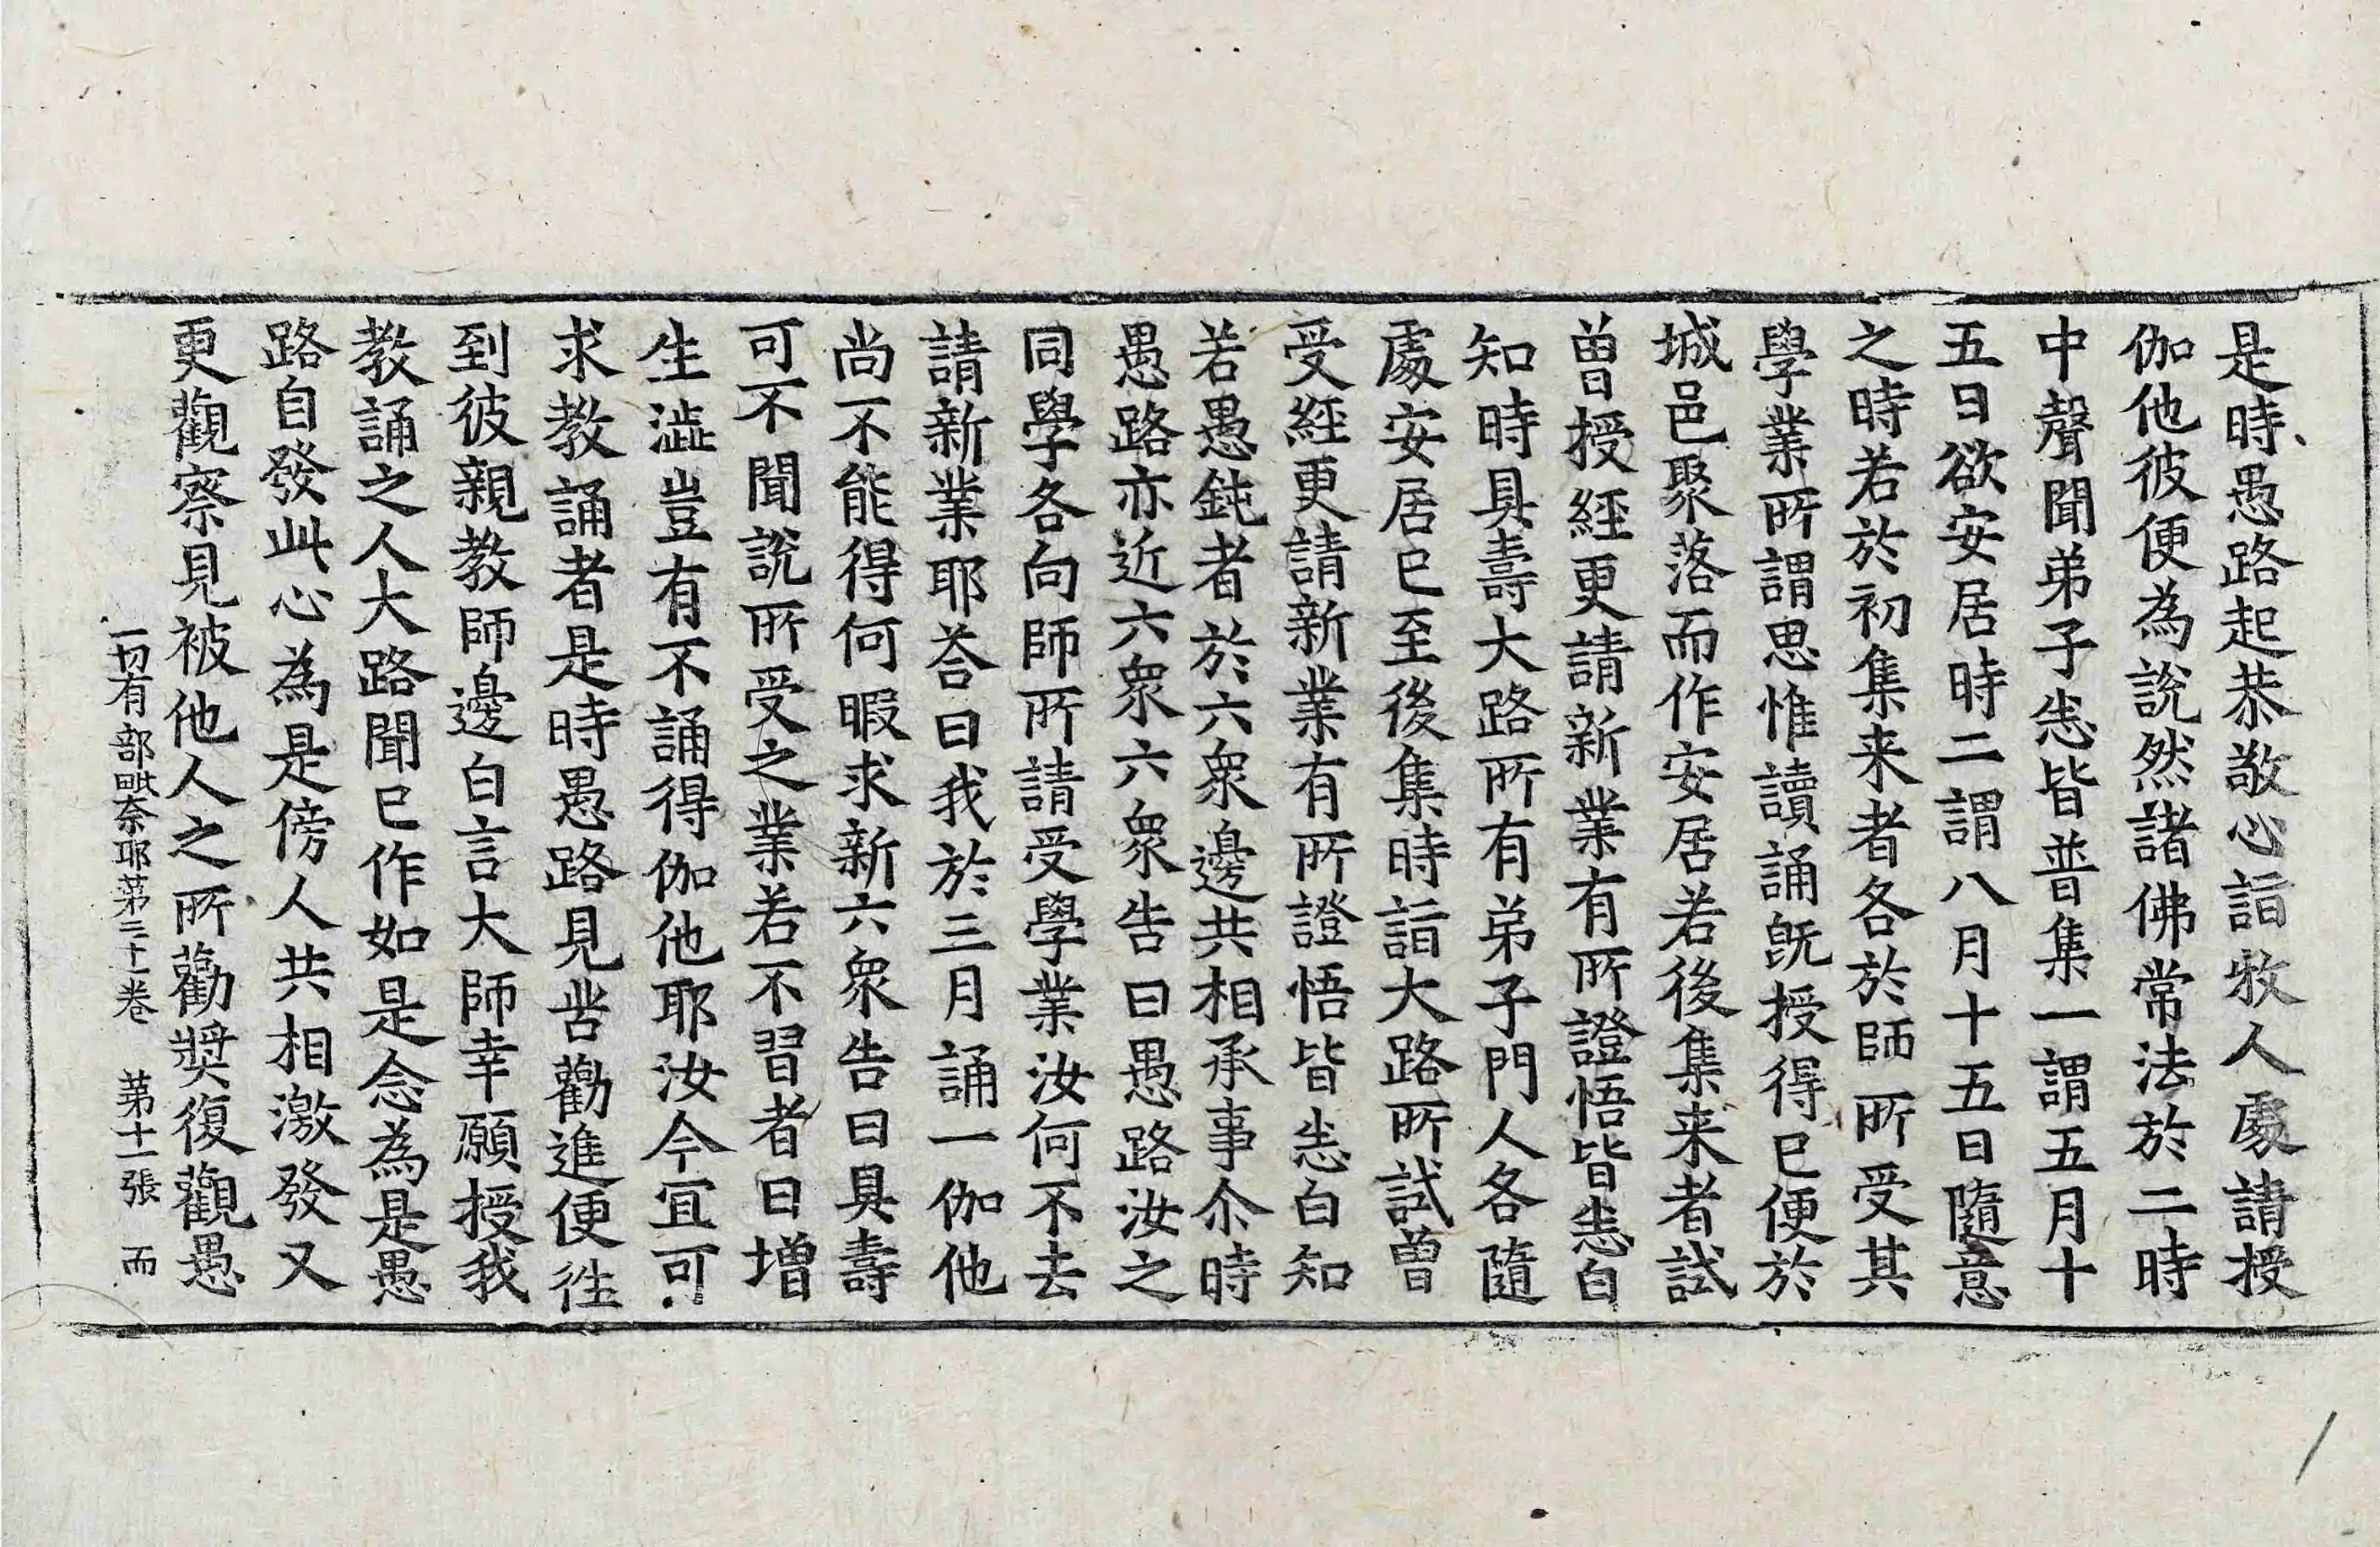 是時愚路起恭敬心詣牧人處請授
伽他彼便為說然諸佛常法於二時
中聲聞弟子悉皆普集一謂五月十
五日欲安居時二謂八月十五日隨意
之時若於初集来者各於師所受其
學業所謂思惟讀誦旣授得已便於
城邑聚落而作安居若後集来者試
曾授經更請新業有所證悟皆悉白
知時具壽大路所有弟子門人各隨
處安居已至後集時詣大路所試曾
受經更請新業有所證悟皆悉白知
若愚鈍者於六衆邊共相承事尒時
愚路亦近六衆六衆告曰愚路汝之
同學各向師所請受學業汝何不去
請新業耶荅曰我於三月誦一伽他
尚不能得何暇求新六衆告曰具壽
可不聞說所受之業若不習者日增
生澁豈有不誦得伽他耶汝今冝可
求教誦者是時愚路見苦勸進便往
到彼親教師邊白言大師幸願授我
教誦之人大路聞已作如是念為是愚
路自發此心為是傍人共相激發又
更觀察見被他人之所勸奬復觀愚
一切有部毗奈耶苐三十一卷　苐十一張　而